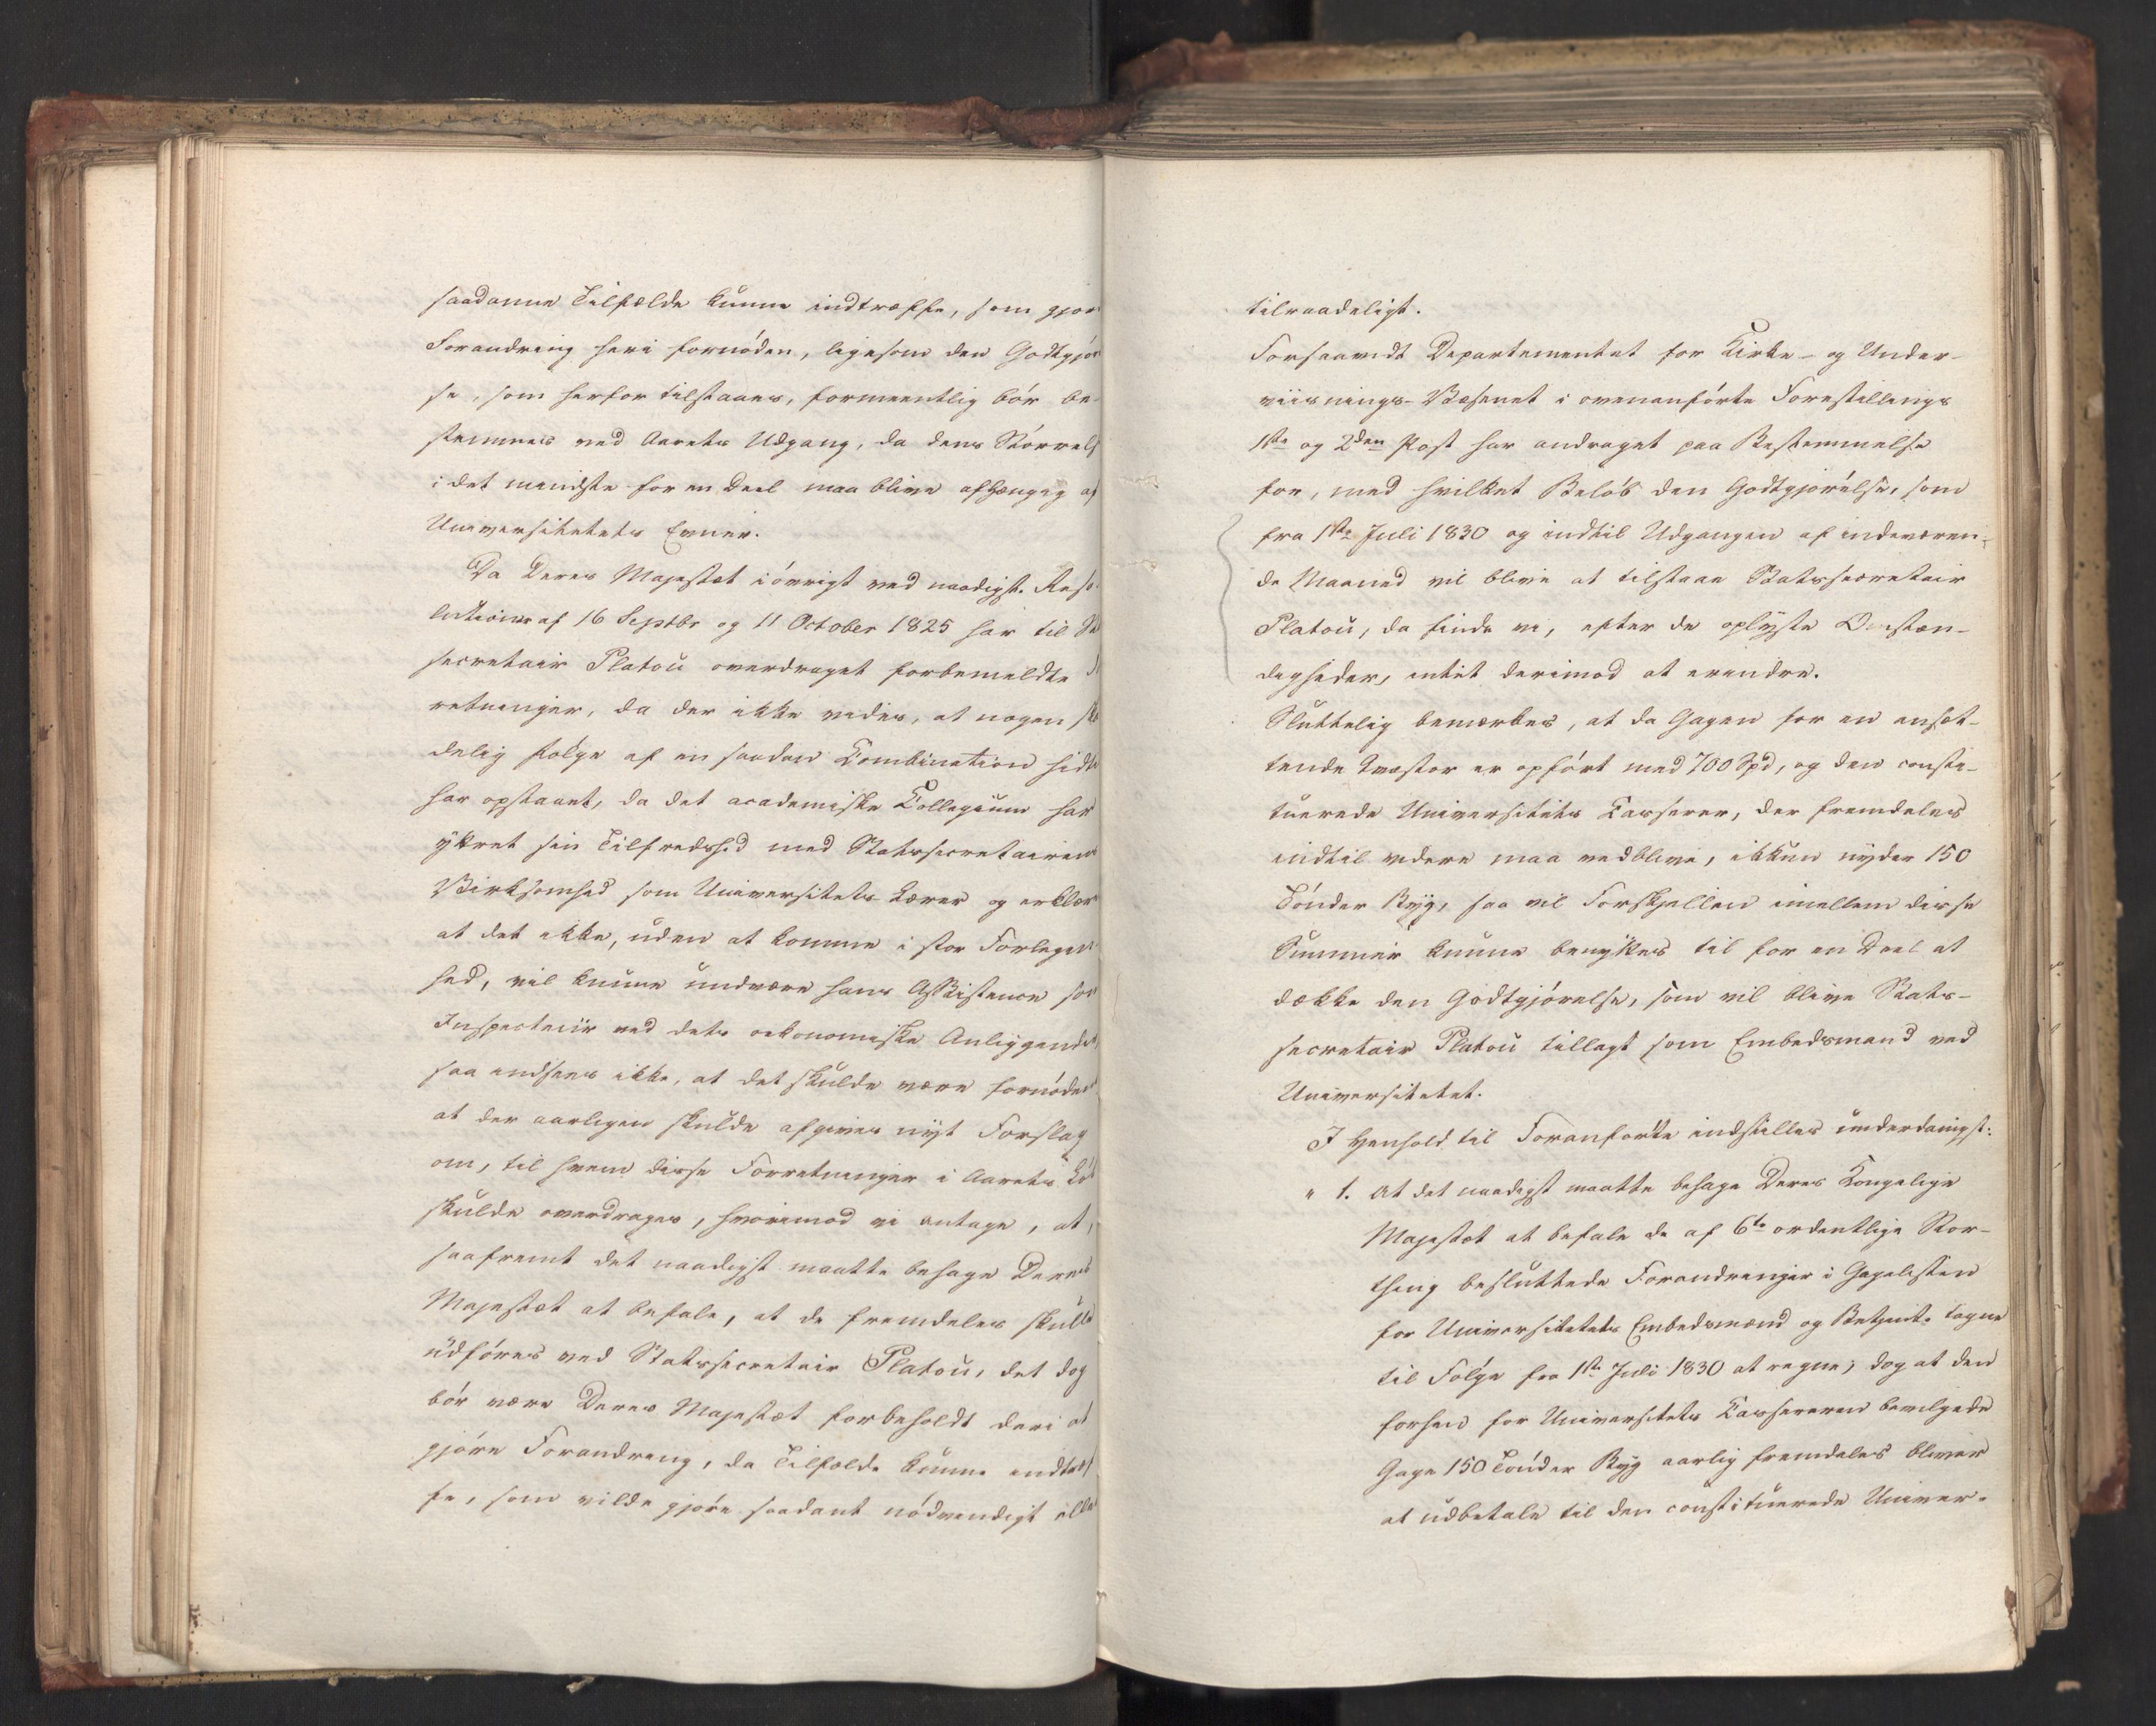 saadanne Tilfælde kunne indtræffe, som gjør
Forandring heri fornöden, ligesom den Godtgjör
se, som herfor tilstaaes, formeentlig bör be-
stemmes ved Aarets Udgang, da dens Störrels
i det mindste for en Deel maa blive afhængig af
Universitetets Evner.
Da Deres Majestæt iövrigt ved naadigst. Reso-
lutioner af 16 Septbr og 11 October 1825 har til St
secretair Platou overdraget forbemeldte
retninger, da der ikke vides, at nogen ska
delig Følge af en saadan Combination hidti
har opstaaet, da det academiske Collegium har
yttret sin Tilfredshed med Statssecretairens
Virksomhed som Universitets Lærer og erklær
at det ikke, uden at komme i stor Forlegen-
hed, vil kunne undvære hans Assistence som
Inspecteur ved dets oekonomiske Anliggender,
saa indsees ikke, at det skulde være fornödent
at der aarligen skulde afgives nyt Forslag
om, til hvem disse Forretninger i Aarets Löb
skulde overdrages, hvorimod vi antage, at,
saafremt det naadigst maatte behage Deres
Majestæt at befale, at de fremdeles skulde
udföres ved Statssecretair Platou, det dog
bör være Deres Majestæt forbeholdt deri at
gjöre Forandring, da Tilfælde kunne indtræf
fe, som vilde gjöre saadant nödvendigt eller
tilraadeligt.
Forsaavidt Departementet for Kirke- og Under-
viisnings-Væsenet i ovenanförte Forestillings
1ste og 2den Post har andraget paa Bestemmelse
for, med hvilket Belöb den Godtgjörelse, som
fra 1ste Juli 1830 og indtil Udgangen af indeværen-
de Maaned vil blive at tilstaae Statssecretair
Platou, da finde vi, efter de oplyste Omstæn-
digheder, intet derimod at erindre.
Sluttelig bemærkes, at da Gagen for en ansæt-
tende Qvæstor er opfört med 700 Spd, og den consti-
tuerede Universitets Casserer, der fremdeles
indtil videre maa vedblive, ikkun nyder 150
Tönder Byg, saa vil Forskjellen imellem disse
Summer kunne benyttes til for en Deel at
dække den Godtgjörelse, som vil blive Stats-
secretair Platou tillagt som Embedsmand ved
Universitetet.
I Henhold til Foranförte indstilles underdanigst:
" 1. At det naadigst maatte behage Deres Kongelige
Majestæt at befale de af 6te ordentlige Stor-
thing besluttede Forandringer i Gagelisten
for Universitetets Embedsmænd og Betjente tagne
til Fölge fra 1ste Juli 1830 at regne; dog at den
forhen for Universitets Cassereren bevilgede
Gage 150 Tönder Byg aarlig fremdeles bliver
at udbetale til den constituerede Univer-